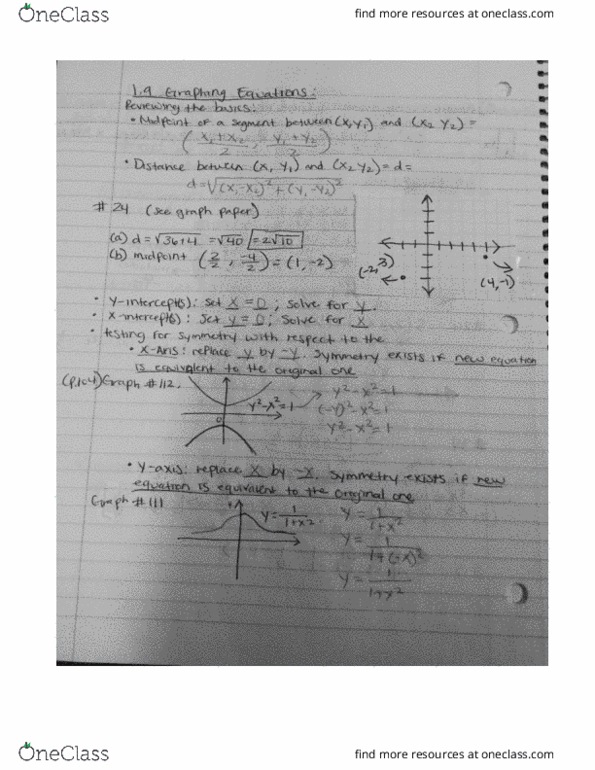 OneClass
find more resources at oneclass.com
1.9 Graphing Equations:
Reviewing the basics:
• Midpoint of a segment between (x,y₁) and (x₂ y₂) =
( x₁+x₂ / 2 , y₁+y₂ / 2 )
• Distance between (x, y₁) and (x₂ y₂) = d =
d = √(x₁-x₂)² + (y₁-y₂)²
#24 (see graph paper)
(a) d = √36+4 = √40 = 2√10
(b) midpoint (2/2, -4/2) = (1, -2)
(-2,-3)
(4,-1)
• y-intercept(s): set x = 0; solve for y.
• x-intercept(s): set y = 0; solve for x
• testing for symmetry with respect to the
• x-Axis: replace y by -y. Symmetry exists if new equation
is equivalent to the original one
(p.104) Graph #112.
y²-x²=1
0
y²-x²=1
(-y)²-x²=1
y²-x²=1
• y-axis: replace x by -x. Symmetry exists if new
equation is equivalent to the original one
Graph #111
y = 1/1+x²
y = 1/1+x²
y = 1/1+(-x)²
y = 1/1+x²
OneClass
find more resources at oneclass.com